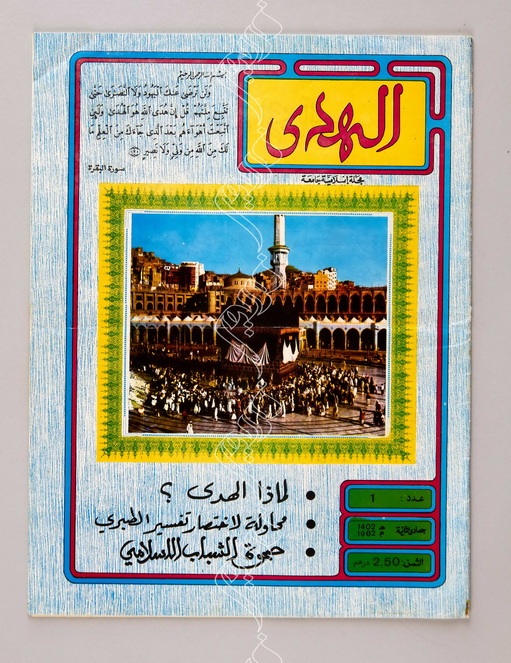 بسم الله الرحمن الرحيم
وَلَن تَرضى عَنكَ اليَهودُ وَلَا النَّصَارَى حَتَّى
تَتَّبِعَ مِلَّتَهُمْ قُلْ إِنَّ هُدَى اللَّهِ هُوَ الهُدَى وَلَئِنِ
اتَّبَعْتَ أَهْوَاءَهُم بَعْدَ الَّذِي جَاءَكَ مِنَ العِلْمِ مَا
لَكَ مِنَ اللَّهِ مِن وَلِيٍّ وَلَا نَصِيرٍ
سورة البقرة
الهدى
مجلة إسلامية جامعة
• لماذا الهدى ؟
• محاولة لاختصار تفسير الطبري
• صحوة الشباب الإسلامي
عدد : 1
جمادى الثانية 1402 هـ
1982 م
الثمن: 2,50 درهم